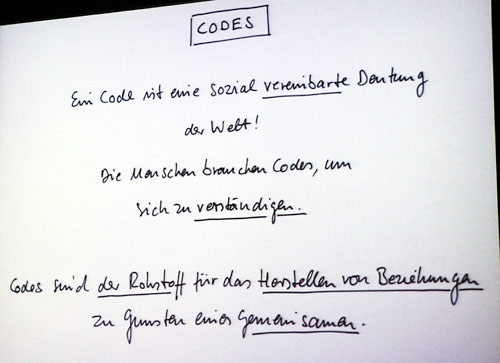 CODES
Ein Code ist eine sozial vereinbarte Deutung
der Welt!
Die Menschen brauchen Codes, um
sich zu verständigen.
Codes sind der Rohstoff für das Herstellen von Beziehungen
zu Gunsten eines Gemeinsamen.